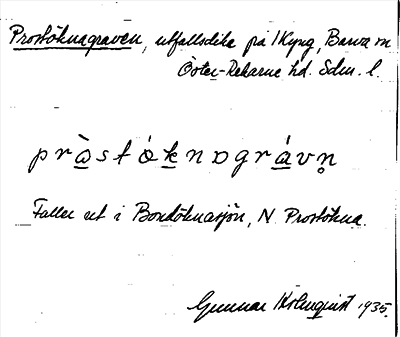 Prostöknagraven, utfallsdike på 1 Kyng, Barva sn
Öster-Rekarne hd. Sdm. l.
pròstóknɒgrávn̥
Faller ut i Bondöknasjön, N. Prostökna.
Gunnar Holmquist 1935.